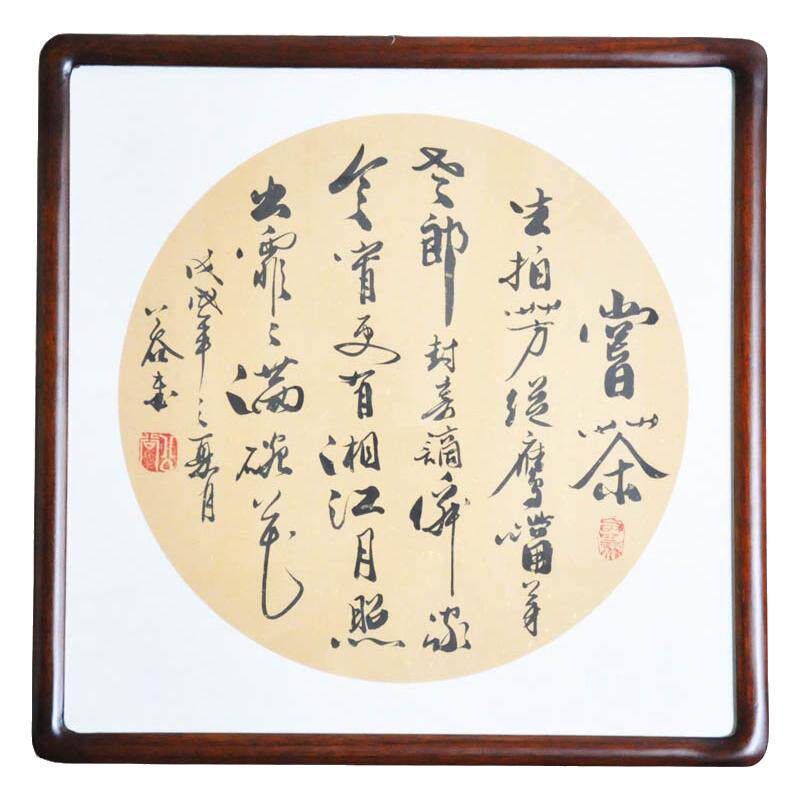 嘗茶
生拍芳從鷹嘴芽
老郎封寄謫僊家
今宵更有湘江月照
出霏〻滿碗花
戊戌年之夏月